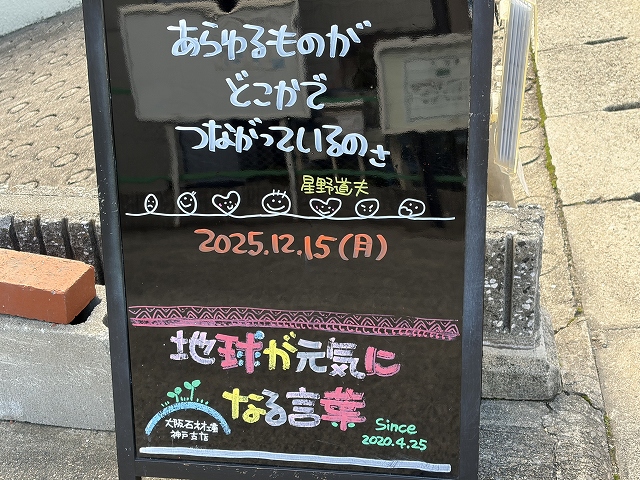 あらゆるものが
どこかで
つながっているのさ
星野道夫
2025.12.15(月)
地球が元気に
なる言葉
Since
2020.4.25
大阪石材工事
神戸支店